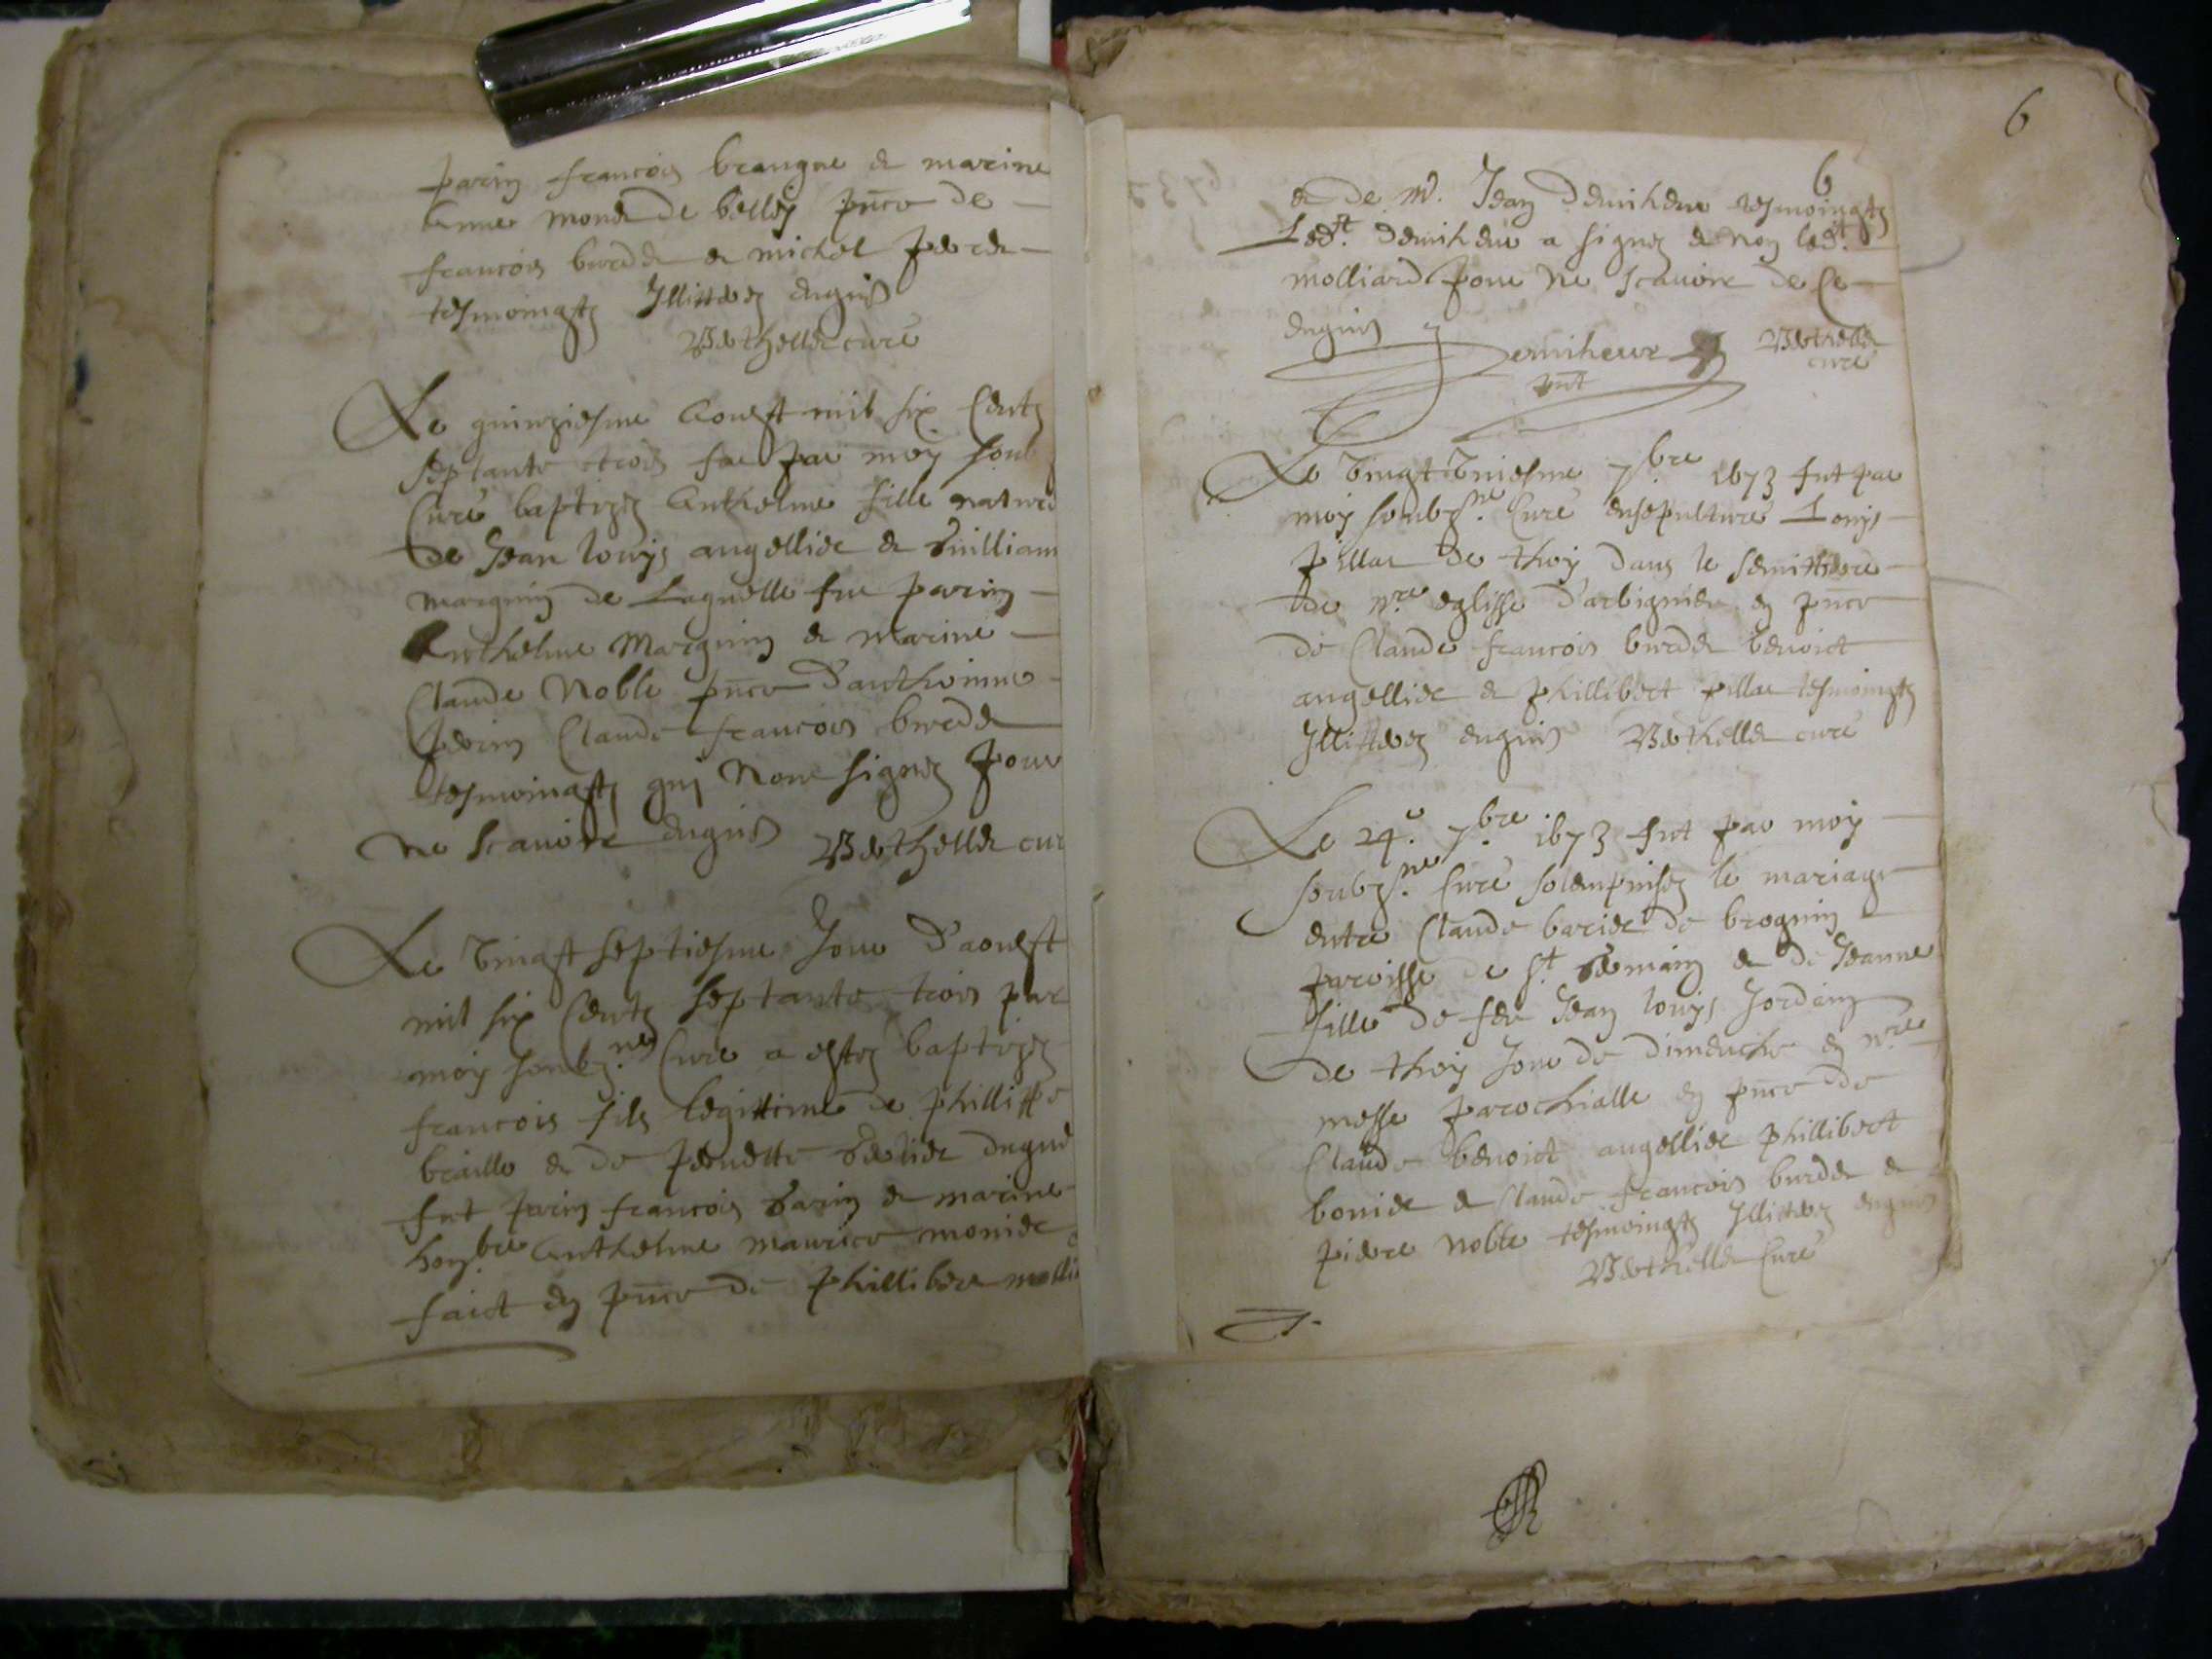 parin francois braugne et marine
anne monet de belley pnce de
francois burdet et michel
tesmoingts Illitterez enquis
Berthellet curé
Le quinziesme Aoust mil six Centz
septante trois fut par moy soub
Curé baptizez Anthelme fille nature
de Jean louys angellier et Guilliam
marguin de Lagnelle fut parin
Anthelme Marguin et marine
Claude Noble pnce d'anthoinne
perin Claude francois burdet
tesmoingts quj Nont signez pour
ne scauoir enquis Berthellet cur
Le Vingt septiesme Jour d'aoust
mil six Centz septante trois par
moy soubz.né Curé a estez baptizez
francois fils legittime de phillippe
braille et de pernette
fut parin francois Sarin et marine
hon.ble Anthelme maurice monier
faict en pnce de phillibert molli
6
6
et de Mr. Jean Demiheur tesmoingtz
Ledt. Demiheur a signez et non led.t
molliard pour ne scauoir de Ce
enquis Demiheur Berthellet
pnt curé
Le Vingt Vniesme 7.bre 1673 fut par
moy soubz.né Curé ensepulturé Louys
pillar de thoy dans le semittiere
de n.re eglisse d'arbignieu en pnce
de Claude francois burdet benoict
angellier et phillibert pillar tesmoingtz
Illitterez enquis Berthellet curé
Le 24.e 7.bre 1673 fut par moy
soubz.né Curé solempnisez le mariage
entre Claude barier de brognin
paroisse de St. Germain et de Jeanne
fille de feu Jean louys Jordain
de thoy Jour de dimenche en n.re
messe parochialle en pnce de
Claude benoict angellier phillibert
bonier et Claude francois burdet et
pierre noble tesmoingtz Illitterez enquis
Berthellet Curé